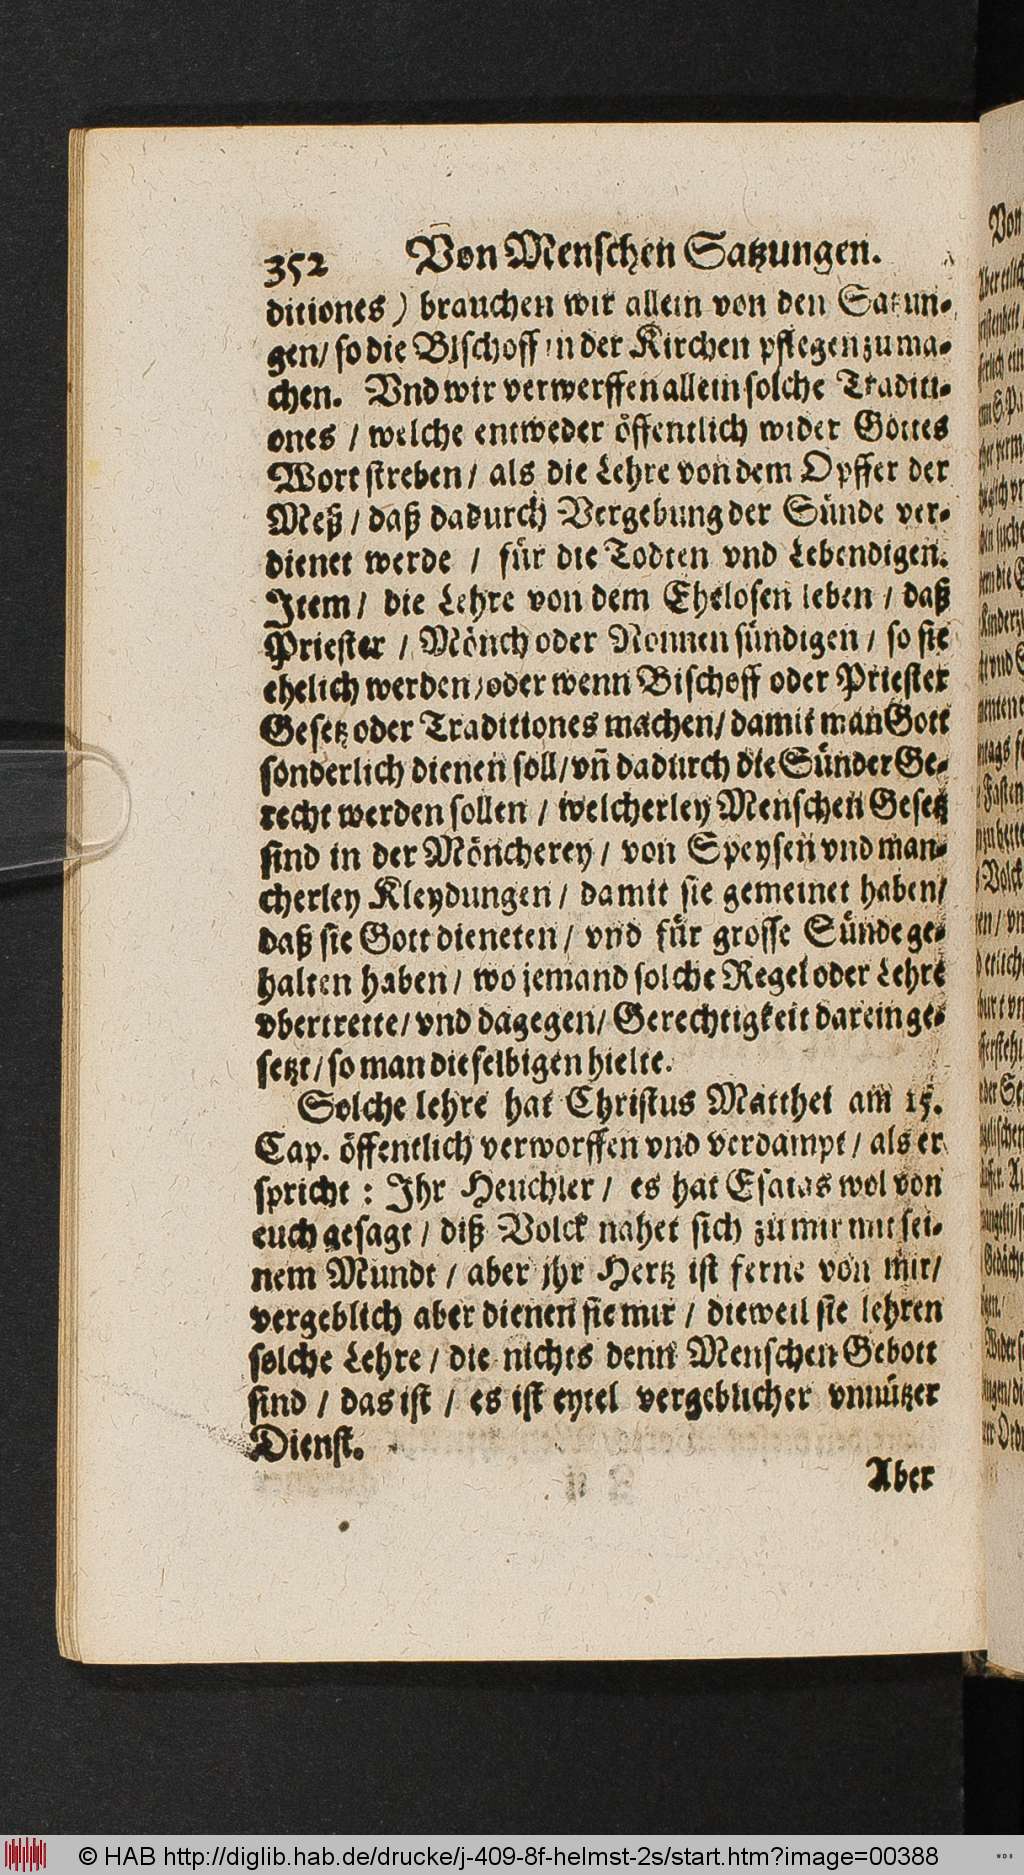 352 Von Menschen Satzungen.
ditiones) brauchen wir allein von den Satzun-
gen/ so die Bischoff in der Kirchen pflegen zu ma-
chen. Vnd wir verwerffen allein solche Traditi-
ones / welche entweder öffentlich wider Gottes
Wort streben / als die Lehre von dem Opffer der
Meß / daß dadurch Vergebung der Sünde ver-
dienet werde / für die Todten vnd Lebendigen.
Item / die Lehre von dem Ehelosen leben / daß
Priester / Mönch oder Nonnen sündigen / so sie
ehelich werden / oder wenn Bischoff oder Priester
Gesetz oder Traditiones machen / damit man Gott
sonderlich dienen soll / vñ dadurch die Sünder Ge-
recht werden sollen / welcherley Menschen Gesetz
sind in der Möncherey / von Speysen vnd man-
cherley Kleydungen / damit sie gemeinet haben /
daß sie Gott dieneten / vnd für grosse Sünde ge-
halten haben / wo jemand solche Regel oder Lehre
vbertrette / vnd dagegen / Gerechtigkeit darein ge-
setzt / so man dieselbigen hielte.
Solche lehre hat Christus Matthei am 15.
Cap. öffentlich verworffen vnd verdampt / als er
spricht : Ihr Heuchler / es hat Esaias wol von
euch gesagt / diß Volck nahet sich zu mir mit sei-
nem Mundt / aber jhr Hertz ist ferne von mir /
vergeblich aber dienen sie mir / dieweil sie lehren
solche Lehre / die nichts denn Menschen Gebott
sind / das ist / es ist eytel vergeblicher vnnützer
Dienst.
Aber
© HAB http://diglib.hab.de/drucke/j-409-8f-helmst-2s/start.htm?image=00388